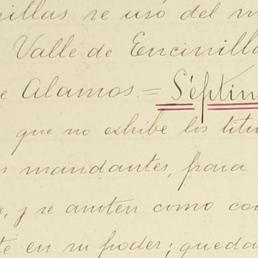 cillas se usó del m
Valle de Encinilla
e Alamos. = Séptim
que no exhibe los títu
s mandantes, para
, y se anoten como co
te en su poder; queda